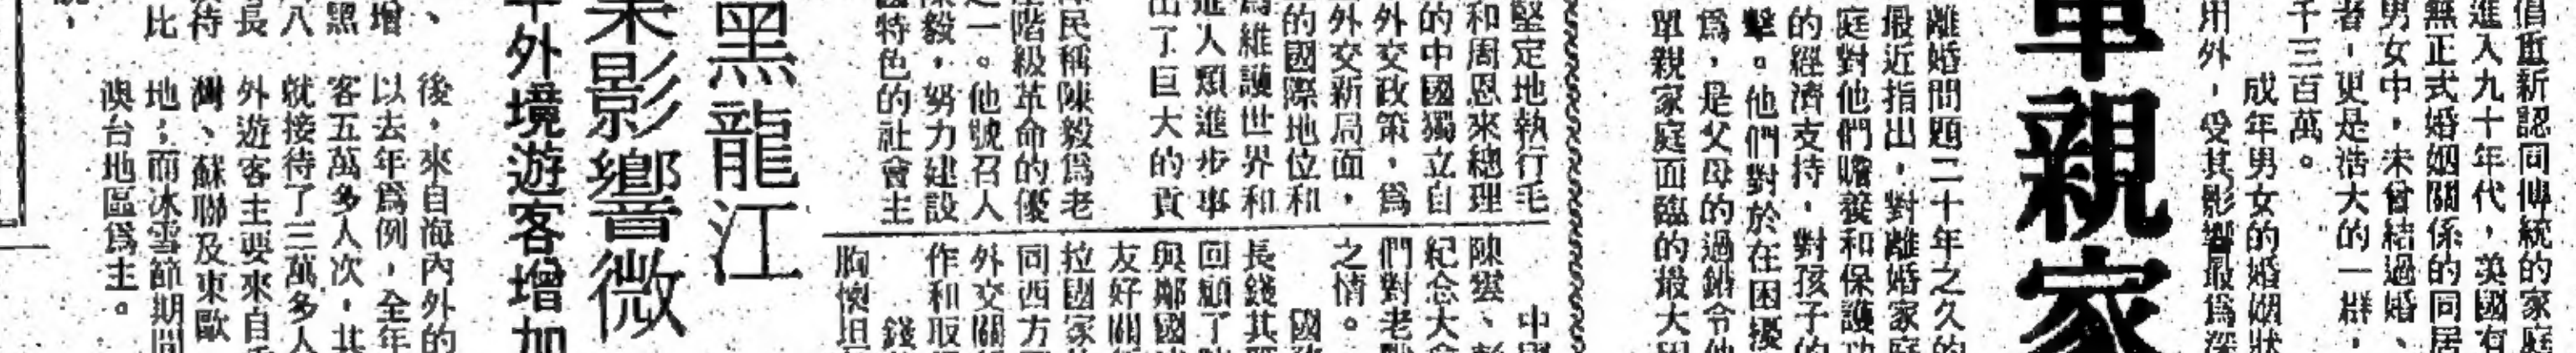 倡重新認同傳統的家庭
進入九十年代，英國有
無正式婚姻關係的同居
男女中，未曾結過婚、
者，更是浩大的一群，
千三百萬。
成年男女的婚姻狀
用外，受其影響最爲深
單親家
離婚問題二十年之久的
最近指出，對離婚家庭
庭對他們贍養和保護功
的經濟支持，對孩子的
擊。他們對於在困擾
爲，是父母的過錯令他
單親家庭面臨的最大困
堅定地執行毛
和周恩來總理
的中國獨立自
外交政策，爲
外交新局面，
的國際地位和
爲維護世界和
進人類進步事
出了巨大的貢
民稱陳毅爲老
階級革命的優
之一。他號召人
陳毅，努力建設
國特色的社會主
中國
陳雲、彭
紀念大會
們對老戰
之情。
國務
長錢其琛
回顧了陳
與鄰國
友好關係
拉國家
同西方
外交關係
作和取
錢
胸懷坦
黑龍江
果影響微
外境遊客增加
後，來自海內外的
以去年爲例，全年
客五萬多人次，其
就接待了三萬多人
外遊客主要來自
灣、蘇聯及東歐
地；而冰雪節期間
澳台地區爲主。
、
增
黑
八
長
待
比